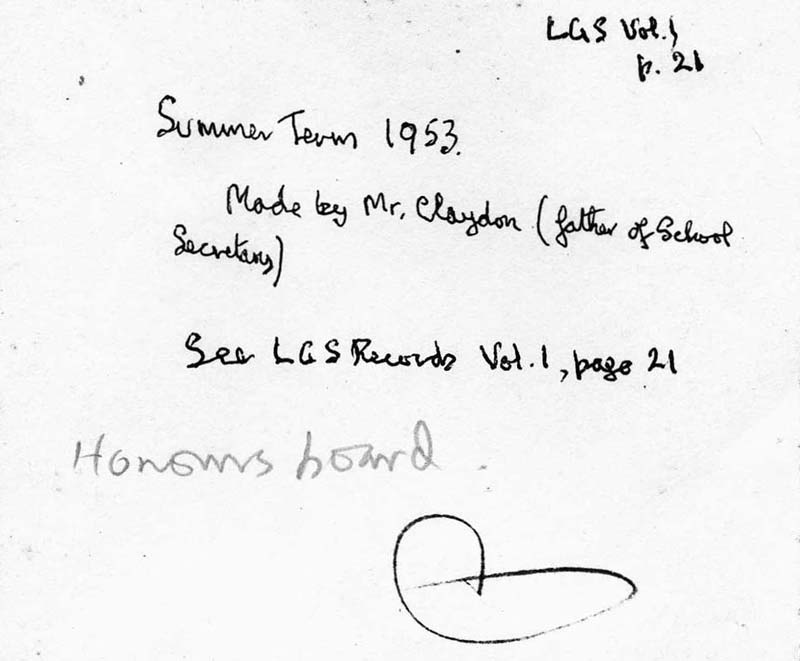 LGS Vol.1
p. 21
Summer Term 1953.
Made by Mr. Claydon (father of School
Secretary)
See LGS Records Vol.1, page 21
Honours board.